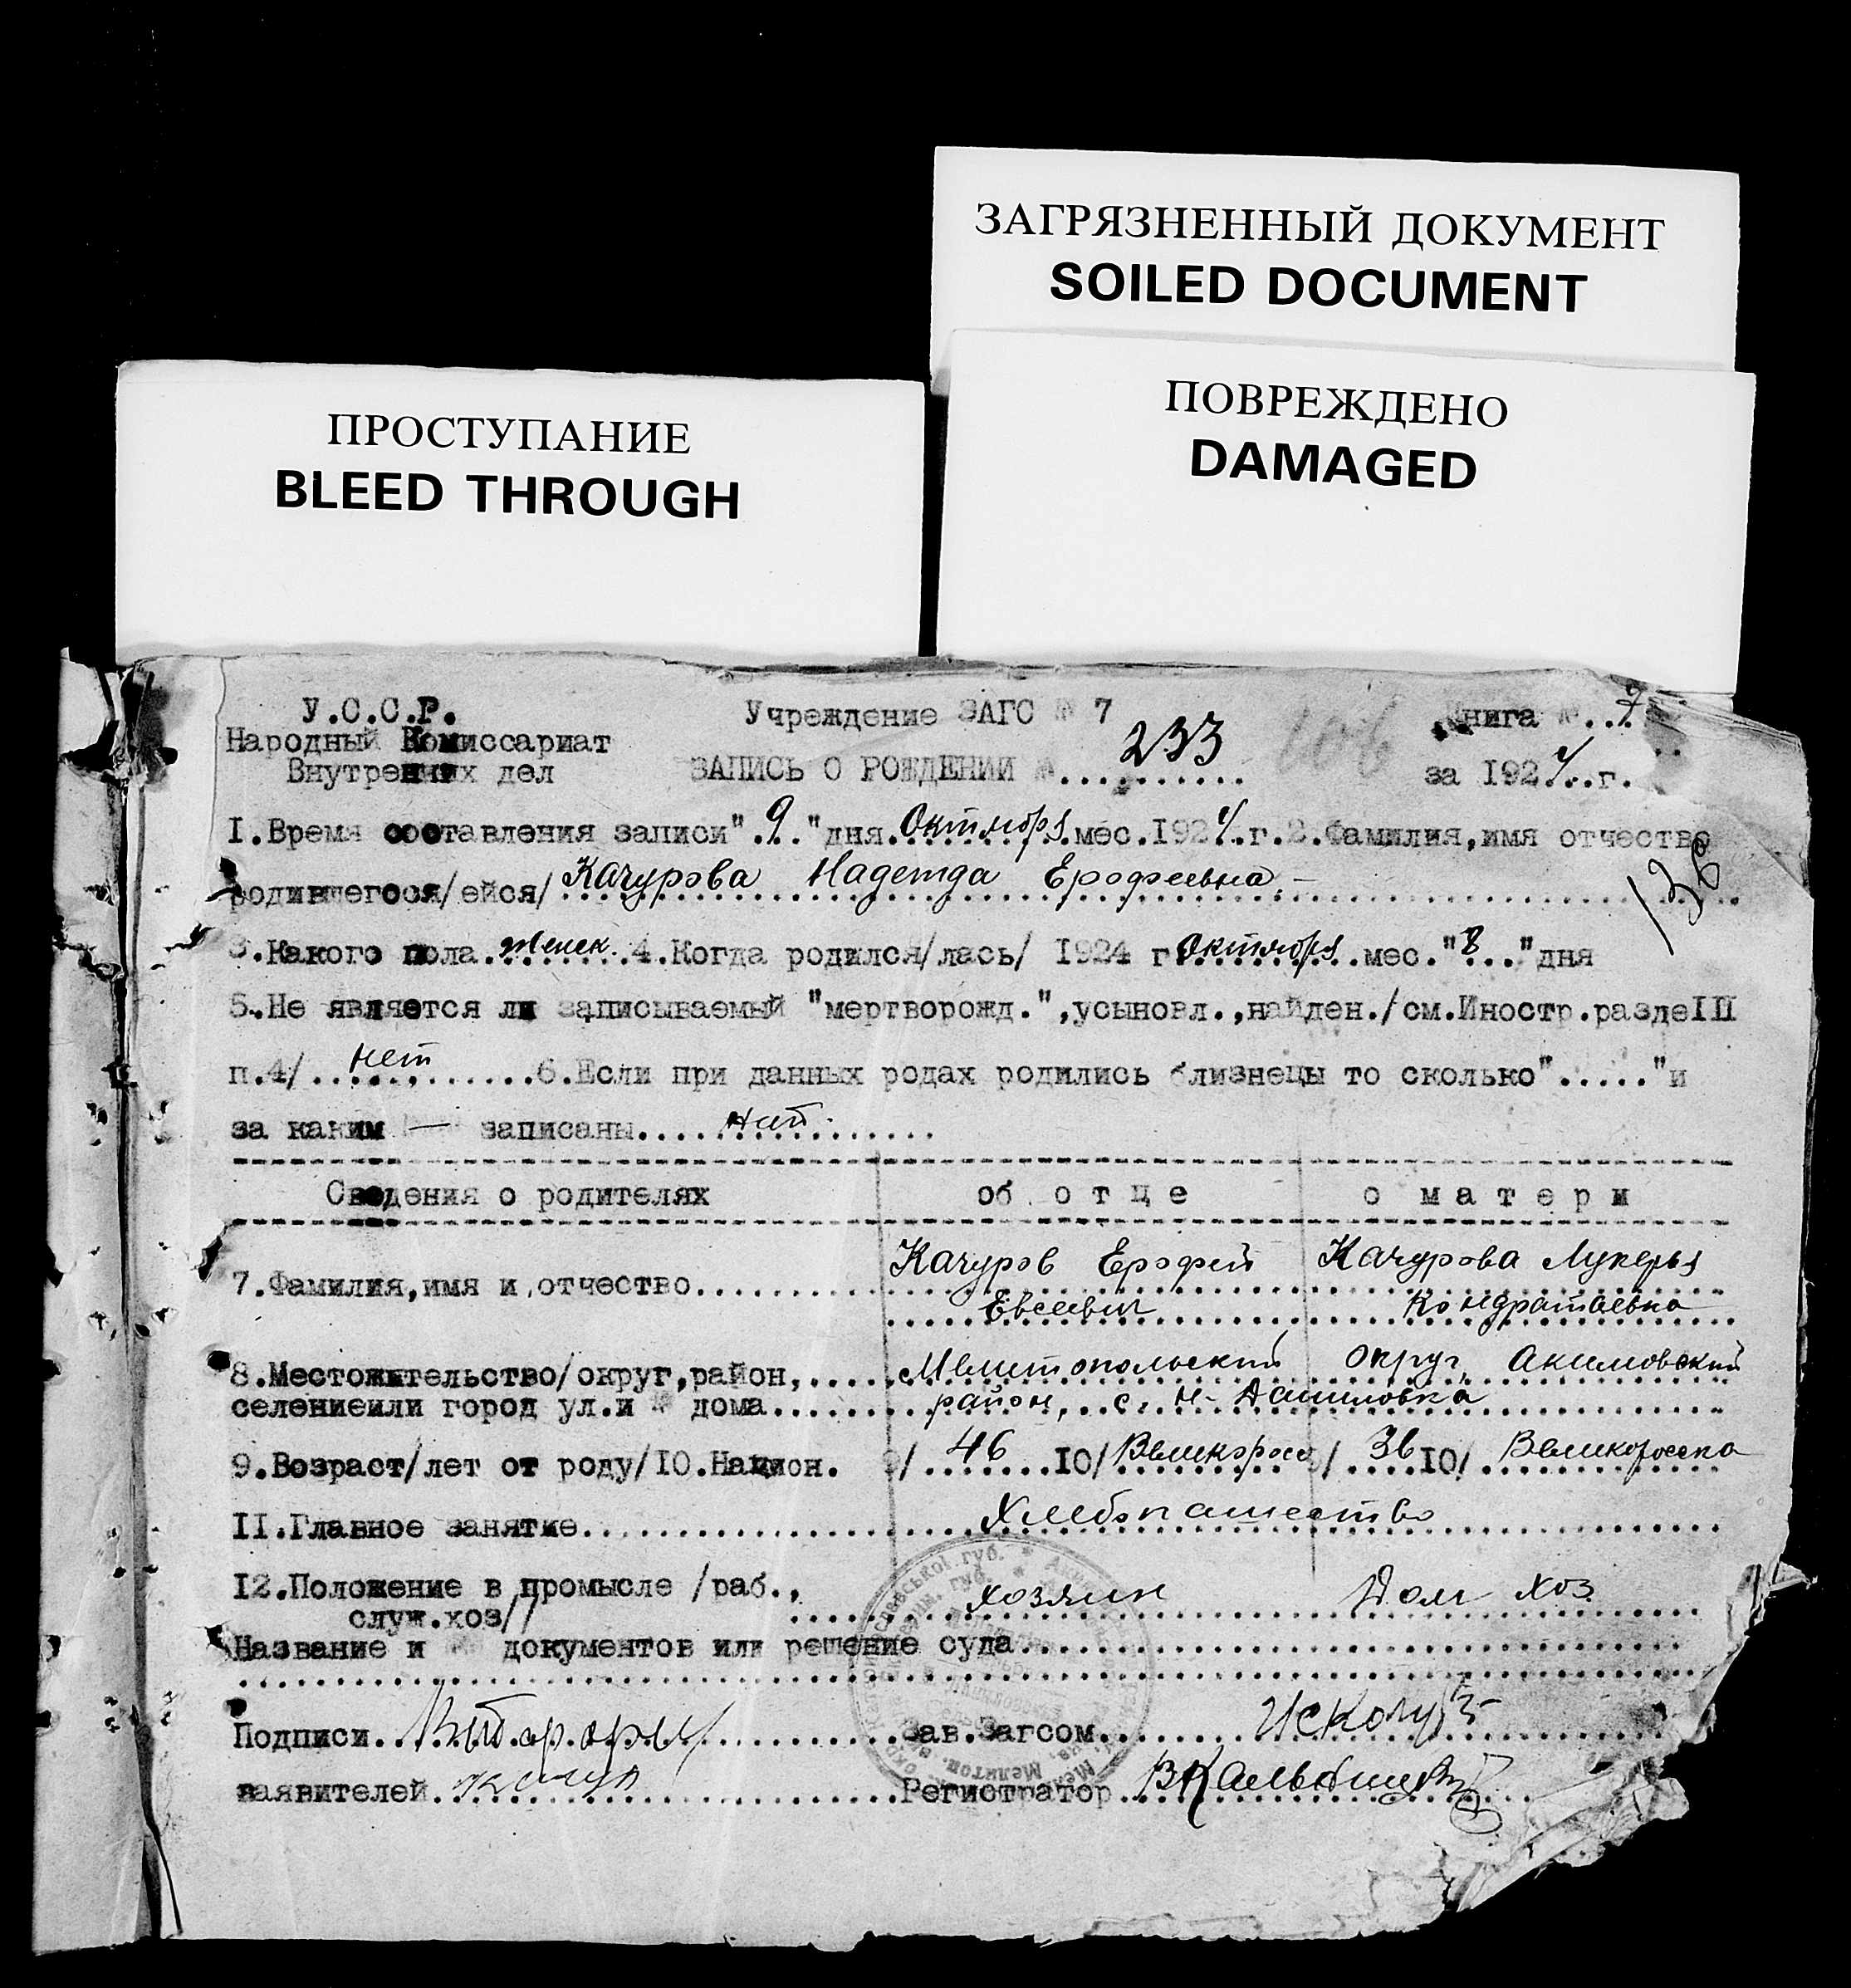 ЗАГРЯЗНЕННЫЙ ДОКУМЕНТ
SOILED DOCUMENT
ПРОСТУПАНИЕ
BLEED THROUGH
ПОВРЕЖДЕНО
DAMAGED
У.С.С.Р.
Учреждение ЗАГС № 7
Книга №..2
Народный Комиссариат
Внутренних дел
ЗАПИСЬ О РОЖДЕНИИ №. 233
106
за 1924.г.
I.Время составления записи".9."дня.Октября.мес.1924.г.2.Фамилия,имя отчество
родившегося/ейся/ Качурова Надежда Ерофеевна
136
3.Какого пола.женск.4.Когда родился/лась/ 1924 г Октября.мес."8..."дня
5.Не является ли записываемый "мертворожд.",усыновл.,найден./см.Иностр.раздеIII
п.4/...нет...6.Если при данных родах родились близнецы то сколько"....."и
за каким — записаны....нет....
Сведения о родителях об отце о матери
7.Фамилия,имя и отчество.... Качуров Ерофей Качурова Лукерья
Евсеевич Кондратьевна
8.Местожительство/округ,район,.... Мелитопольский округ, Акимовский
селениеили город ул.и № дома.... район, с. Н-Даниловка
9.Возраст/лет от роду/10.Национ. 9/ 46 10/ Великоросс 9/ 36 10/ Великоросска
II.Главное занятие.... Хлебопашество
12.Положение в промысле /раб.,
служ.хоз// хозяин Дом хоз
Название и № документов или решение суда....
Подписи.... Зав.Загсом....
заявителей.... Регистратор....